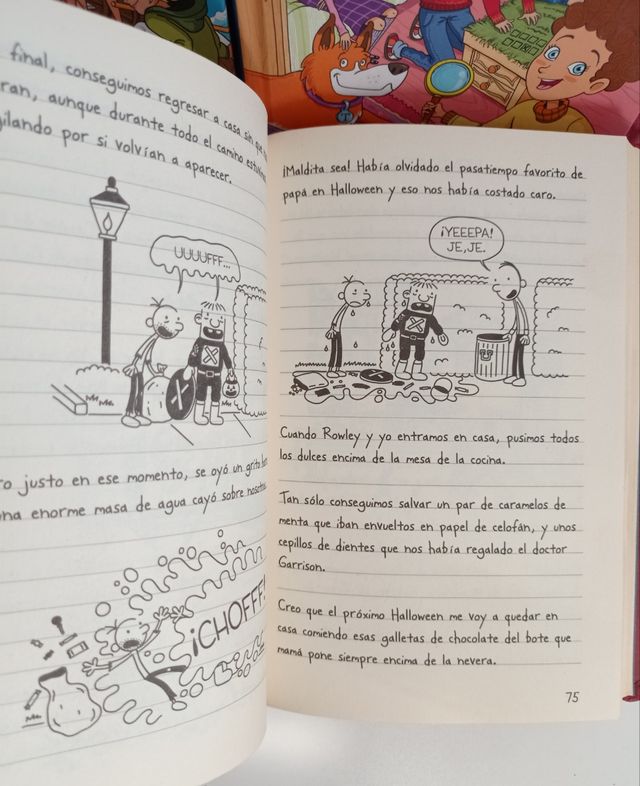 final, conseguimos regresar a casa sin que
aunque durante todo el camino
por si volvían a aparecer.
UUUUFFF...
justo en ese momento, se oyó un grito
enorme masa de agua cayó sobre
¡CHOFFF!
¡Maldita sea! Había olvidado el pasatiempo favorito de
papá en Halloween y eso nos había costado caro.
¡YEEEPA!
JE, JE.
Cuando Rowley y yo entramos en casa, pusimos todos
los dulces encima de la mesa de la cocina.
Tan sólo conseguimos salvar un par de caramelos de
menta que iban envueltos en papel de celofán, y unos
cepillos de dientes que nos había regalado el doctor
Garrison.
Creo que el próximo Halloween me voy a quedar en
casa comiendo esas galletas de chocolate del bote que
mamá pone siempre encima de la nevera.
75